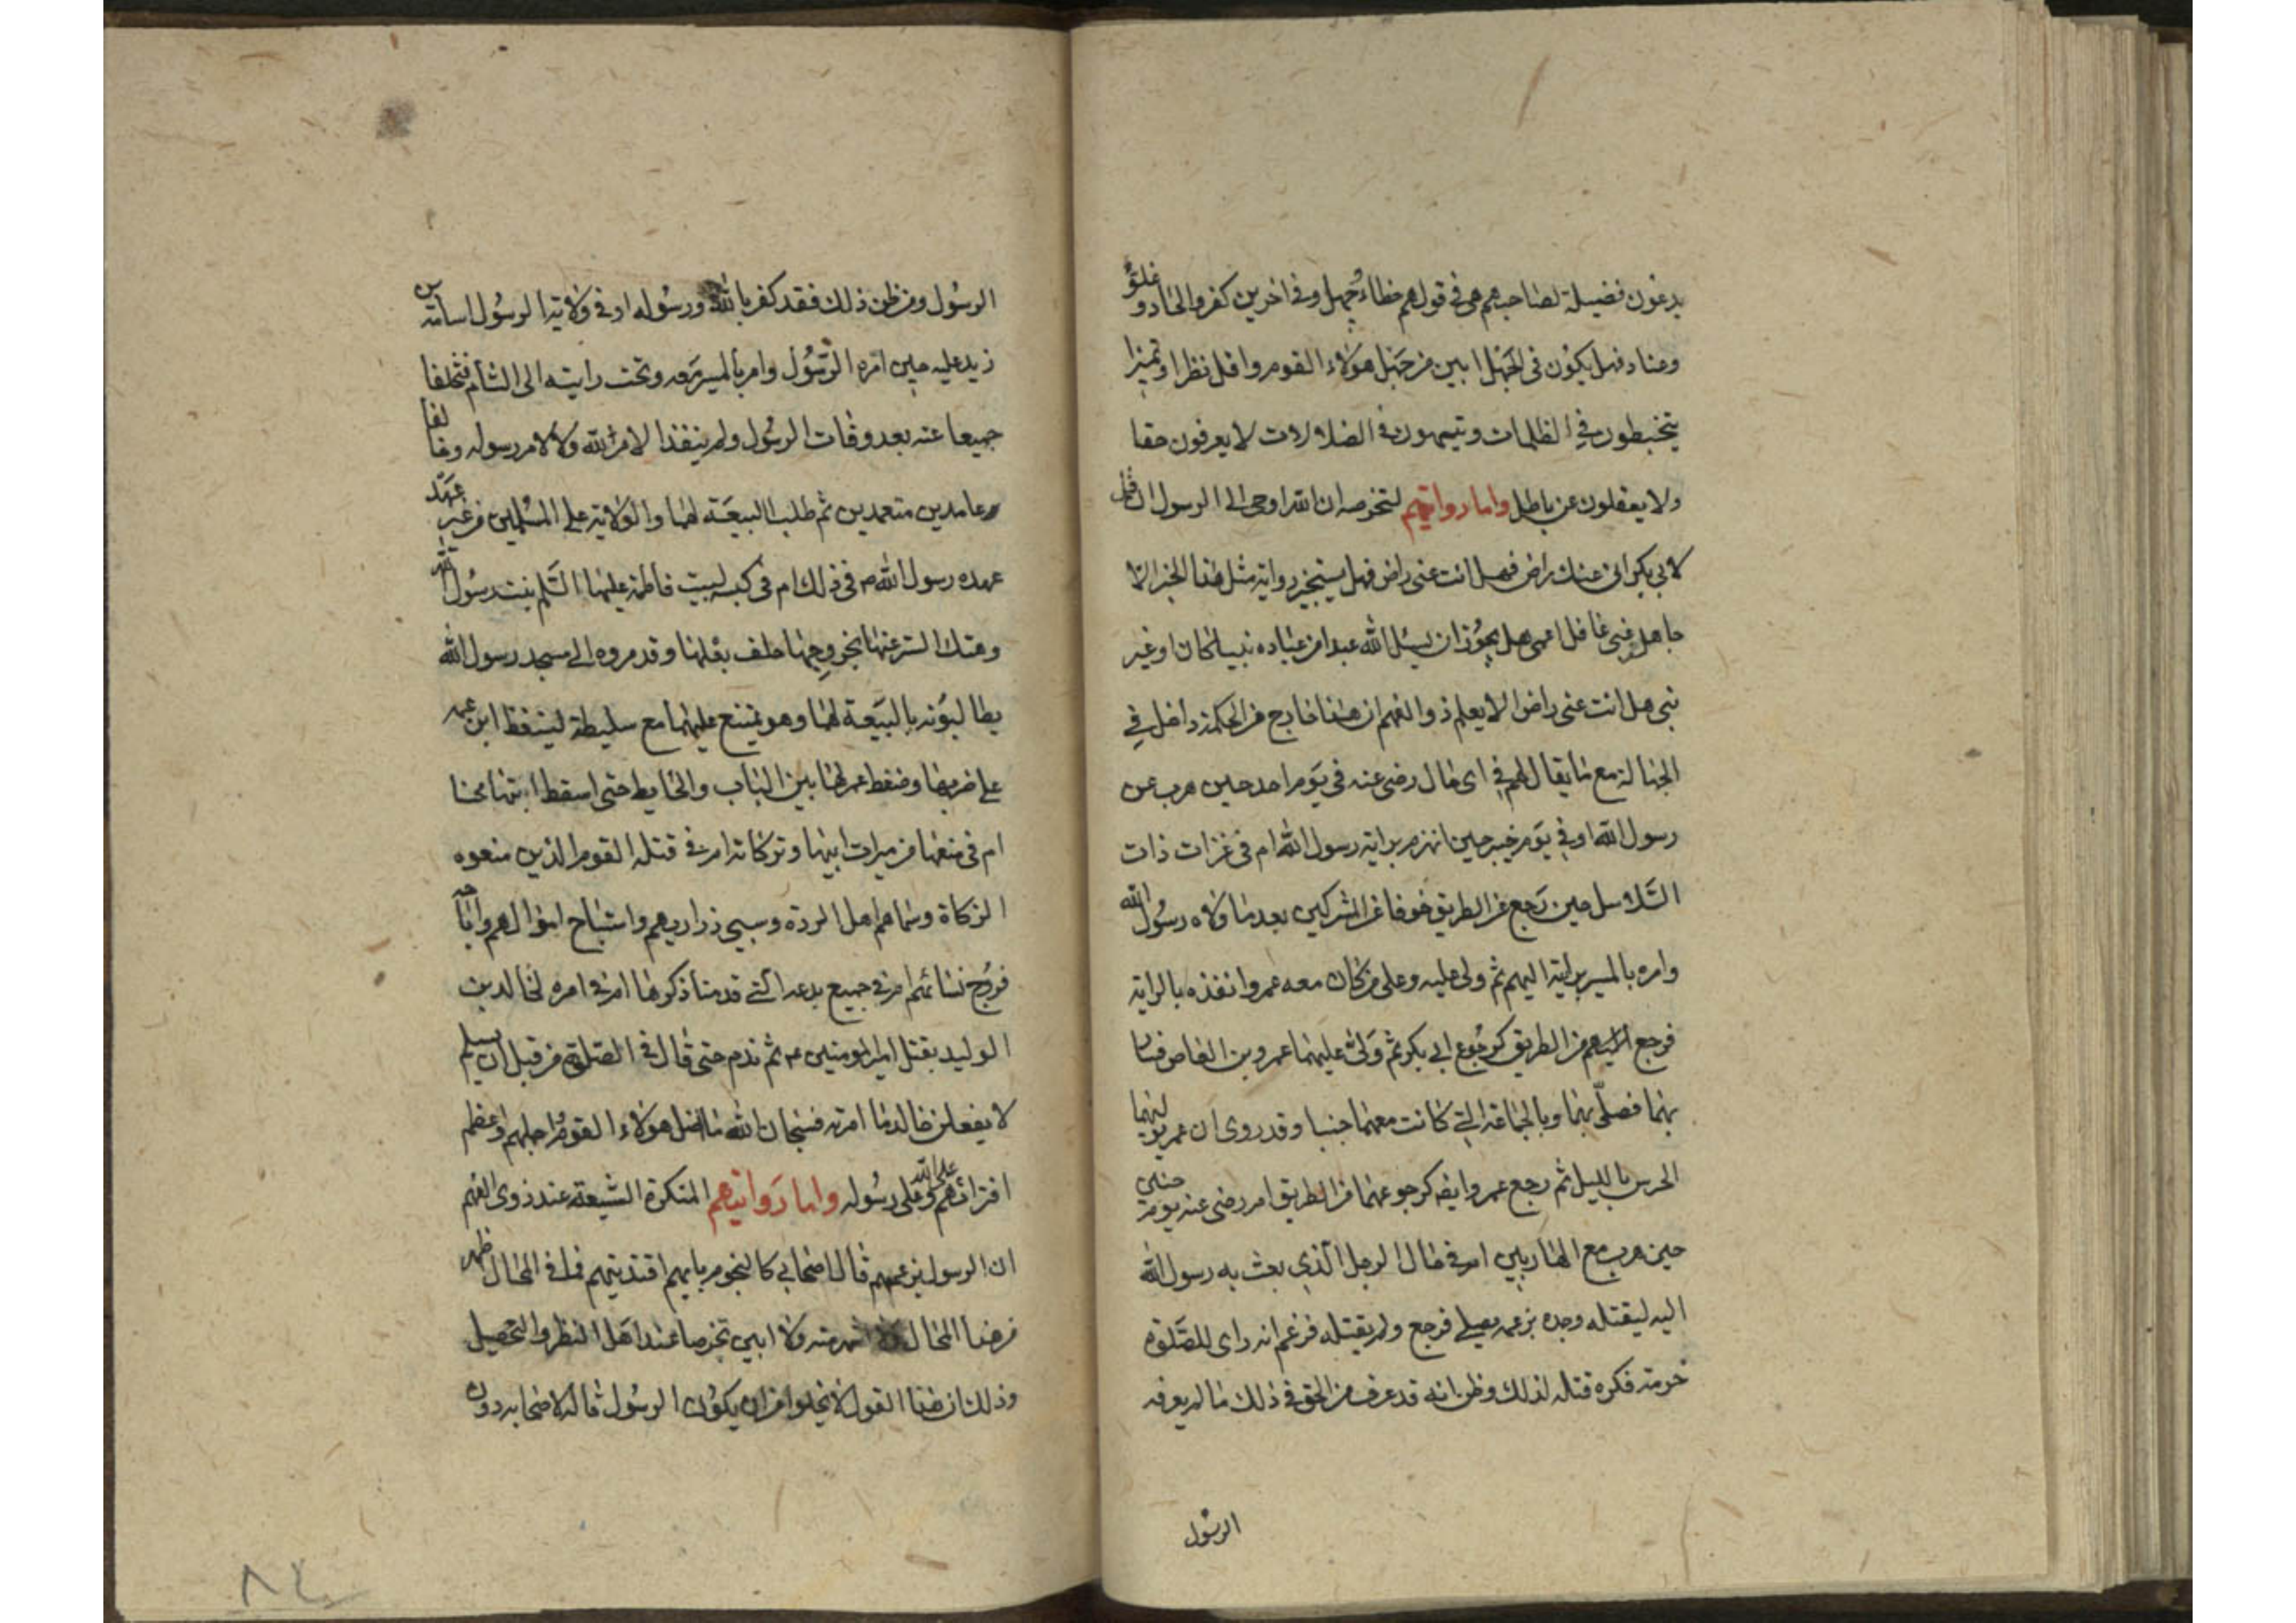 يدعون فضيلة لصاحبهم هى فى قولهم خطاء وجهل وفى اخرين كفر والحاد وغلوّ
وعناد فهل يكون فى الجهل ابين من جهل هؤلاء القوم واقل نظرا وتميزا
يتخبطون فى الظلمات ويتيهون فى الضلالات لا يعرفون حقا
ولا يعقلون عن باطل واما روايتهم لتخرصه ان الله اوحى الى الرسول ان قل
لابى بكر انى عنك راض فهل انت عنى راض فهل يستجيز رواية مثل هذا الخبر الا
جاهل غبى غافل اعمى هل يجوز ان يسئل الله عبدا من عباده نبيا كان او غير
نبى هل انت عنى راض الا يعلم ذو الفهم ان هذا خارج من الحكمة داخل فى
الجهالة مع ما يقال لهم فى اى حال رضى عنه فى يوم احد حين هرب عن
رسول الله او فى يوم خيبر حين انهزم براية رسول الله ام فى غزات ذات
السلاسل حين رجع عن الطريق خوفا عن المشركين بعد ما ولاه رسول الله
وامره بالمسير براية اليهم ثم ولى عليه وعلى من كان معه عمر وانفذه بالراية
فرجع اليهم من الطريق كرجوع ابى بكر ثم ولى عليهما عمرو بن العاص فسار
بهما فصلّى بهما وبالجماعة التى كانت معهما جنبا وقد روى ان عمر يوليهما
الحرس بالليل ثم رجع عمر وايضا كرجوعهما من الطريق ام رضى عنه يوم حنين
حين هرب مع الهاربين ام فى حال الرجل الذى بعث به رسول الله
اليه ليقتله وجده بزعمه يصلى فرجع ولم يقتله فزعم انه راى للصلوة
حرمة فكره قتله لذلك وظن انه قد عرف من الحق فى ذلك ما لم يعرفه
الرسول
الرسول ومن ظن ذلك فقد كفر بالله ورسوله او فى ولاية الرسول اسامة بن
زيد عليه حين امّره الرسول وامر بالمسير معه وتحت رايته الى الشام فتخلفا
جميعا عنه بعد وفات الرسول ولم ينفذا لامر الله ولا لامر رسوله وخالفا
عامدين متعمدين ثم طلب البيعة لهما والولاية على المسلمين من غير عهد
عهده رسول الله ص فى ذلك ام فى كبسه لبيت فاطمة عليها السلم بنت رسول الله
وهتك الستر عنها بخروجها خلف بعلها وقد مروه الى مسجد رسول الله
يطالبونه بالبيعة لهما وهو يمتنع عليهما مع
على ضربها وضغط عمر لها بين الباب والحايط حتى اسقط ابنها محسنا
ام فى منعها من ميراث ابيها وتركاته ام فى قتله القوم الذين منعوه
الزكاة وسماهم اهل الردة وسبى ذراريهم واستباح اموالهم واباحه
فروج نسائهم ام فى جميع بدعه التى قدمنا ذكرها ام فى امره لخالد بن
الوليد بقتل امير المؤمنين ع ثم ندم حتى قال فى الصلوة من قبل ان يسلم
لا يفعلن خالد ما امرته فسبحان الله ما اضل هؤلاء القوم واجهلهم واعظم
افترائهم على الله وعلى رسوله واما روايتهم المنكرة الشنيعة عند ذوى الفهم
ان الرسول بزعمهم قال اصحابى كالنجوم بايهم اقتديتم فما فى المحال اظهر
من هذا المحال منه ولا ابين تخرصا عند اهل النظر والتحصيل
وذلك ان هذا القول لا يخلو من ان يكون الرسول قاله لاصحابه دون